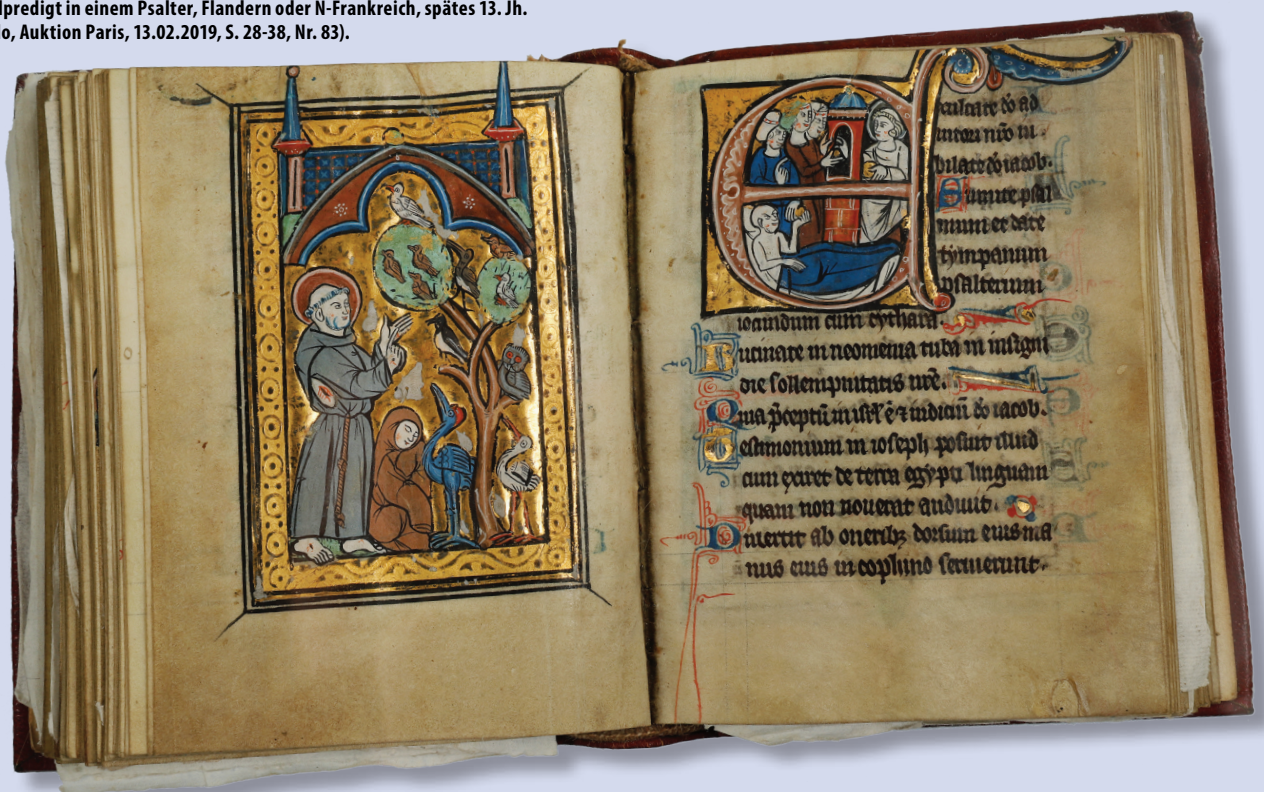 lpredigt in einem Psalter, Flandern oder N-Frankreich, spätes 13. Jh.
lo, Auktion Paris, 13.02.2019, S. 28-38, Nr. 83).
Exultate do ad
iutori nro iu
bilate do iacob.
Sumite psal
mum et date
tympanum
psalterium
iocundum cum cythara.
Bucinate in neomenia tuba in insigni
die sollempnitatis vre.
Quia p̄ceptū in isrl ē ⁊ iudiciū do iacob.
Testimonium in ioseph posuit illud
cum exiret de terra egypti linguam
quam non nouerat audiuit.
Diuertit ab oneribꝫ dorsum eius ma
nus eius in cophino seruierunt.